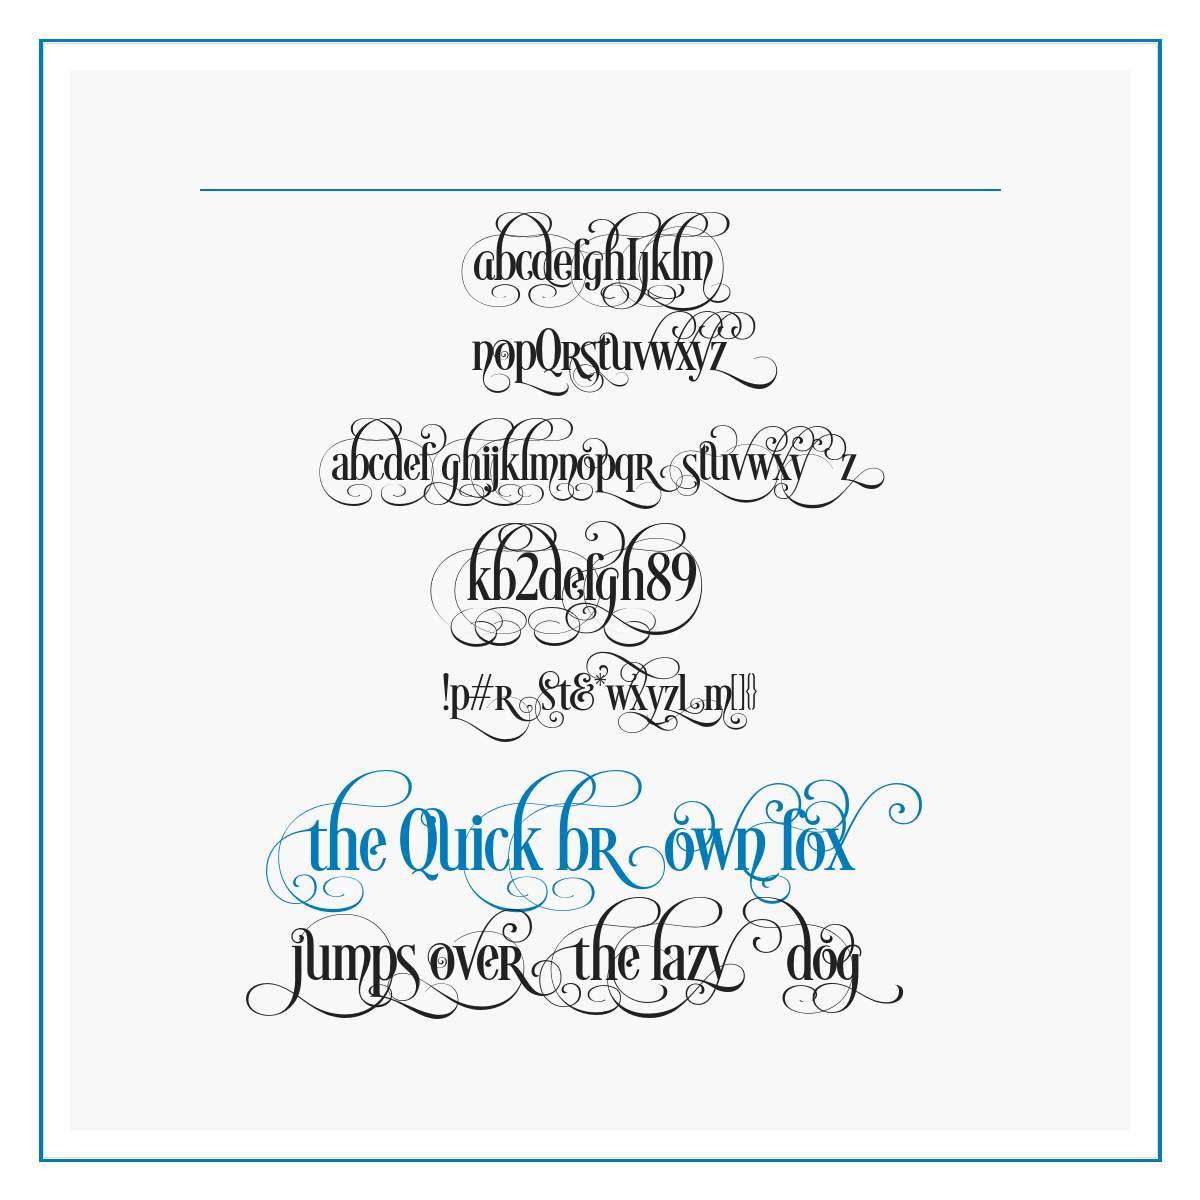 abcdefghIjklm
nopQRstuvwxyz
abcdefghijklmnopqR stuvwxy z
kb2defgh89
!p#R St&*wxyzl m[]{}
the Quick bR own fox
jumps oveR the lazy dog